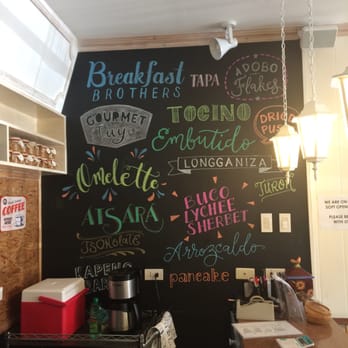 Breakfast
BROTHERS
TAPA
ADOBO
Flakes
GOURMET
Tuyo
TOCINO
Embutido
DRIED
LONGGANIZA
Omelette
TURON
ATSARA
BUCO
LYCHEE
SHERBET
TSOKOLATE
Arrozcaldo
KAPENG
pancake
COFFEE
WE ARE ON
SOFT OPEN
PLEASE BE